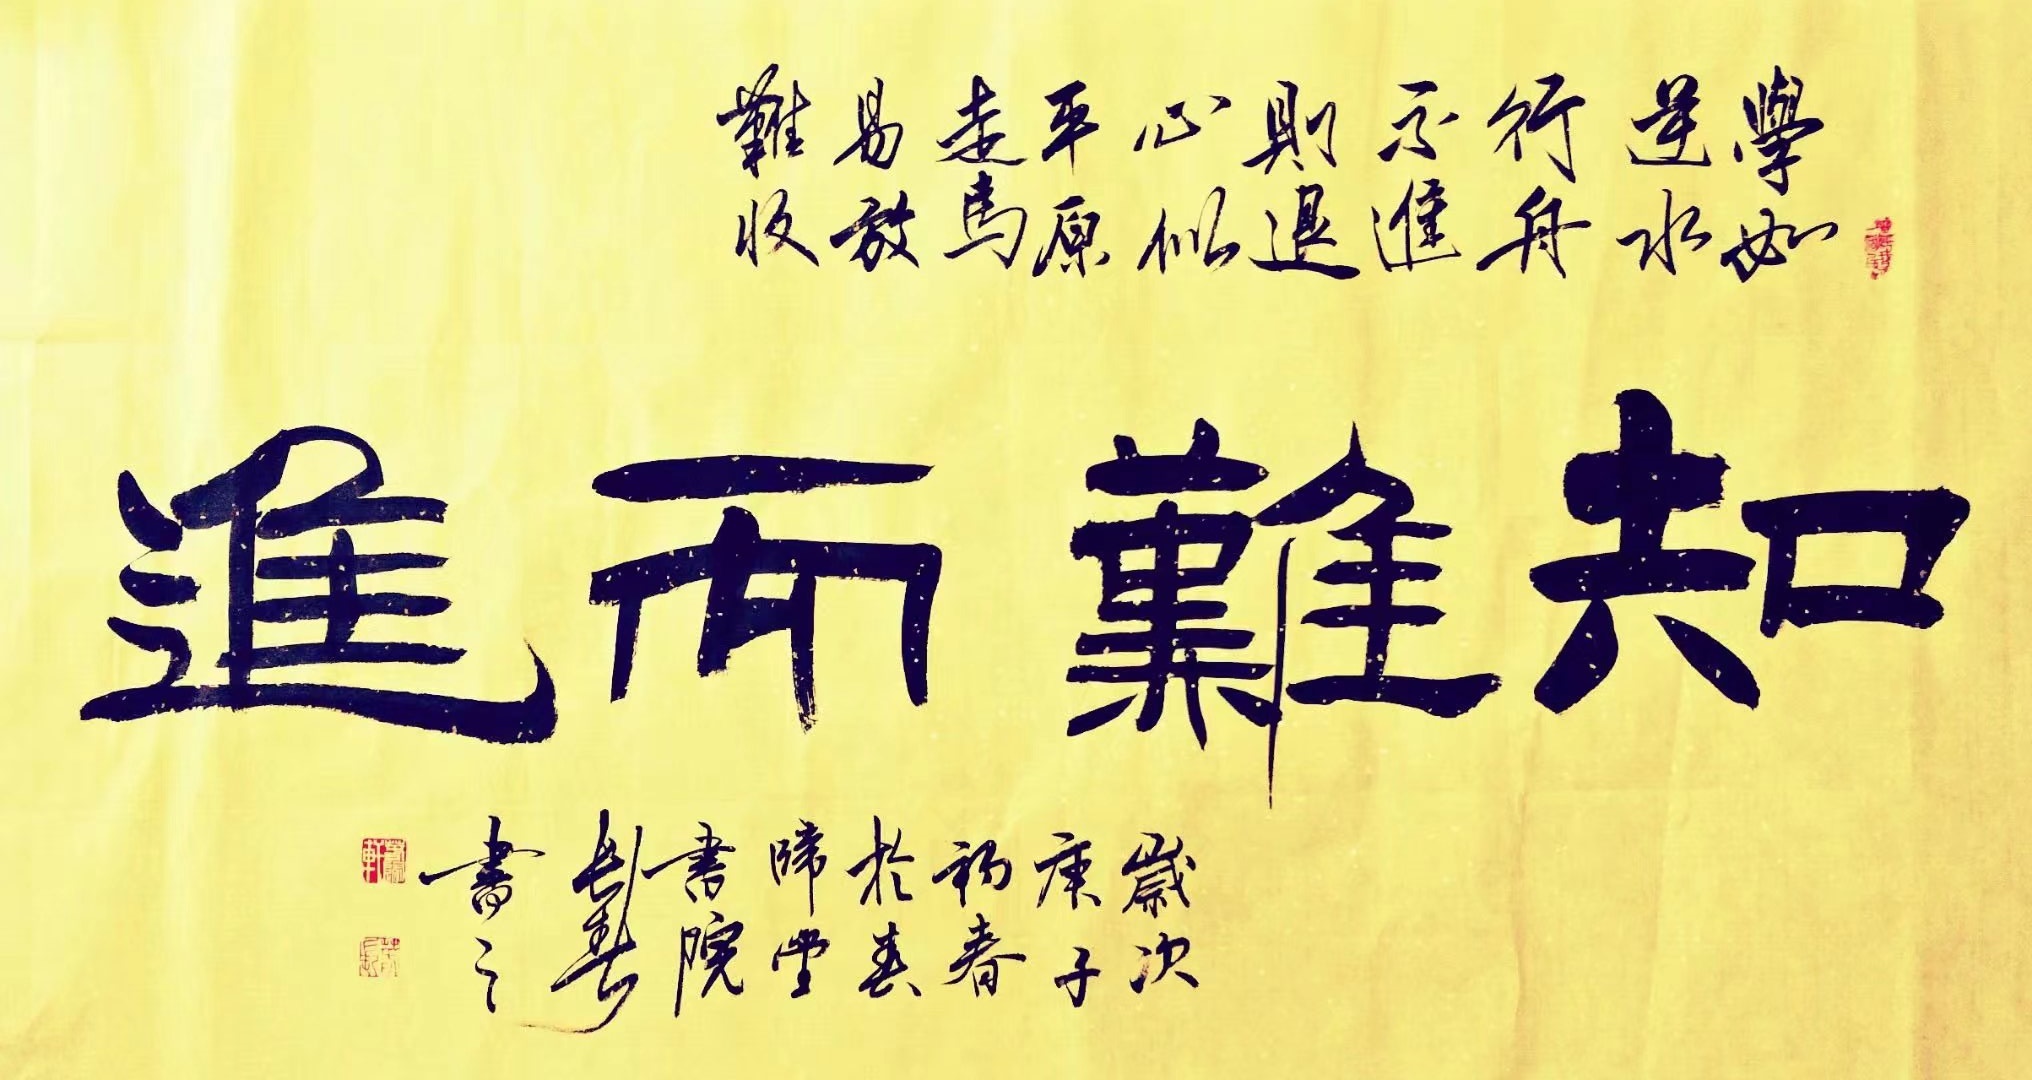 學如
逆水
行舟
不進
則退
心似
平原
走馬
易放
難收
知難而進
歲次
庚子
初春
於春
堂
書院
書之